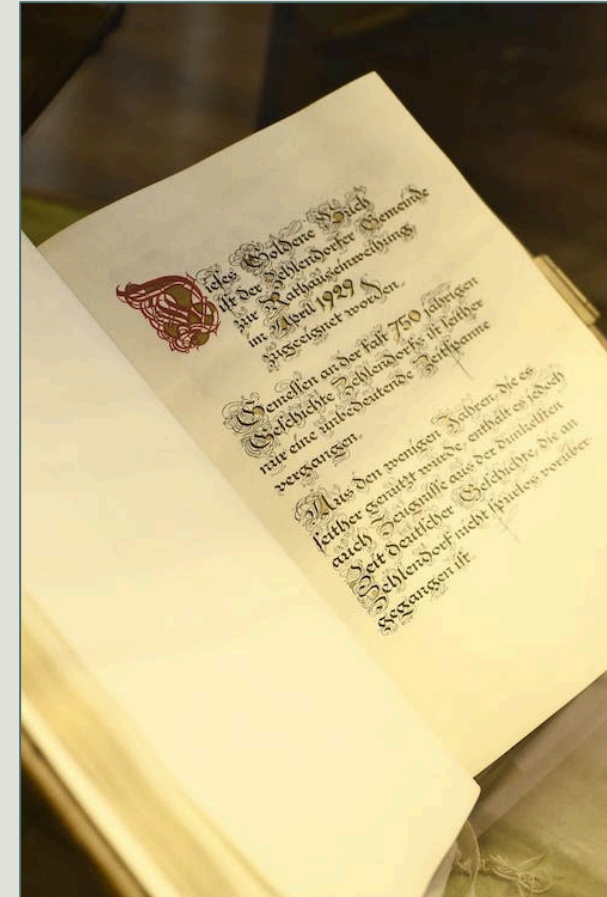 Dieses Goldene Buch
ist der Zehlendorfer Gemeinde
zur Rathauseinweihung
im April 1929
zugeeignet worden.
Gemessen an der fast 750 jährigen
Geschichte Zehlendorfs ist seither
nur eine unbedeutende Zeitspanne
vergangen.
Aus den wenigen Jahren, die es
seither genützt wurde, enthält es jedoch
auch Zeugnisse aus der dunkelsten
Zeit deutscher Geschichte, die an
Zehlendorf nicht spurlos vorüber-
gegangen ist